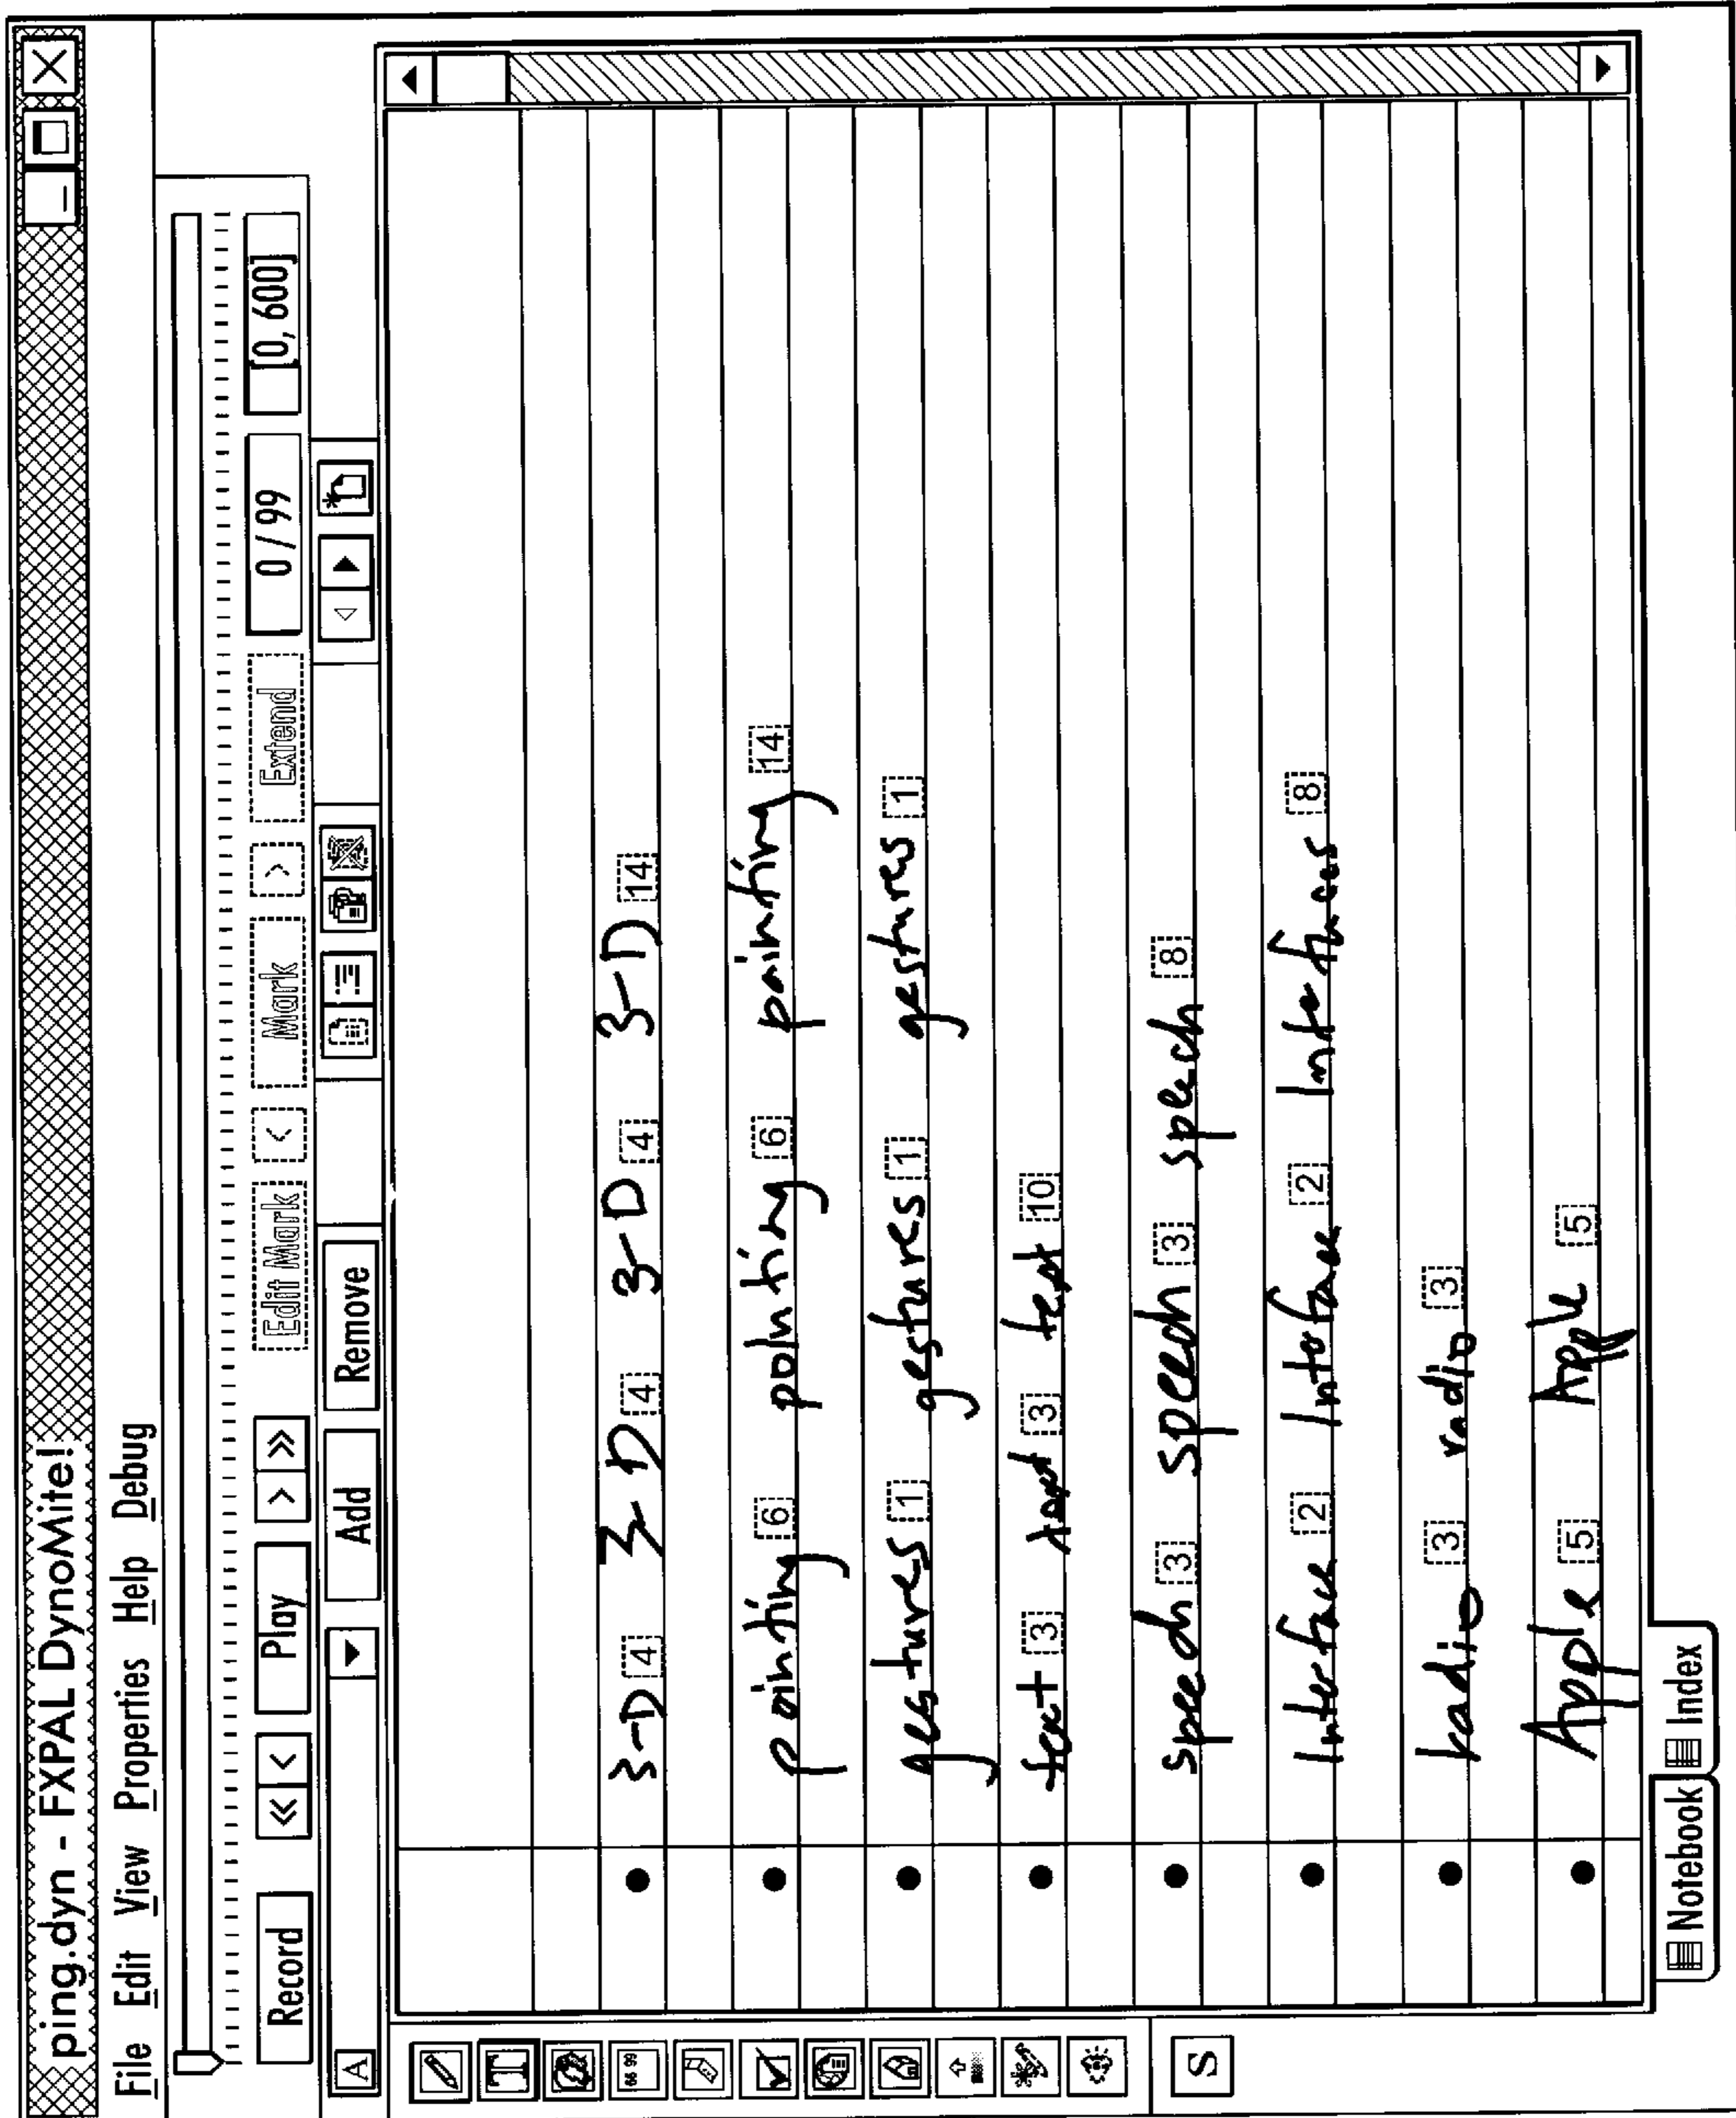 ping.dyn - FXPAL DynoMite!
File Edit View Properties Help Debug
Record << < Play > >> Edit Mark < Mark > Extend 0 / 99 [0, 600]
A Add Remove
T
S
3-D 4 3-D 4 3-D 4 3-D 14
pointing 6 pointing 6 painting 14
gestures 1 gestures 1 gestures 1
text 3 text 3 text 10
speech 3 speech 3 speech 8
Interface 2 Interface 2 Interfaces 8
radio 3 radio 3
Apple 5 Apple 5
Notebook Index